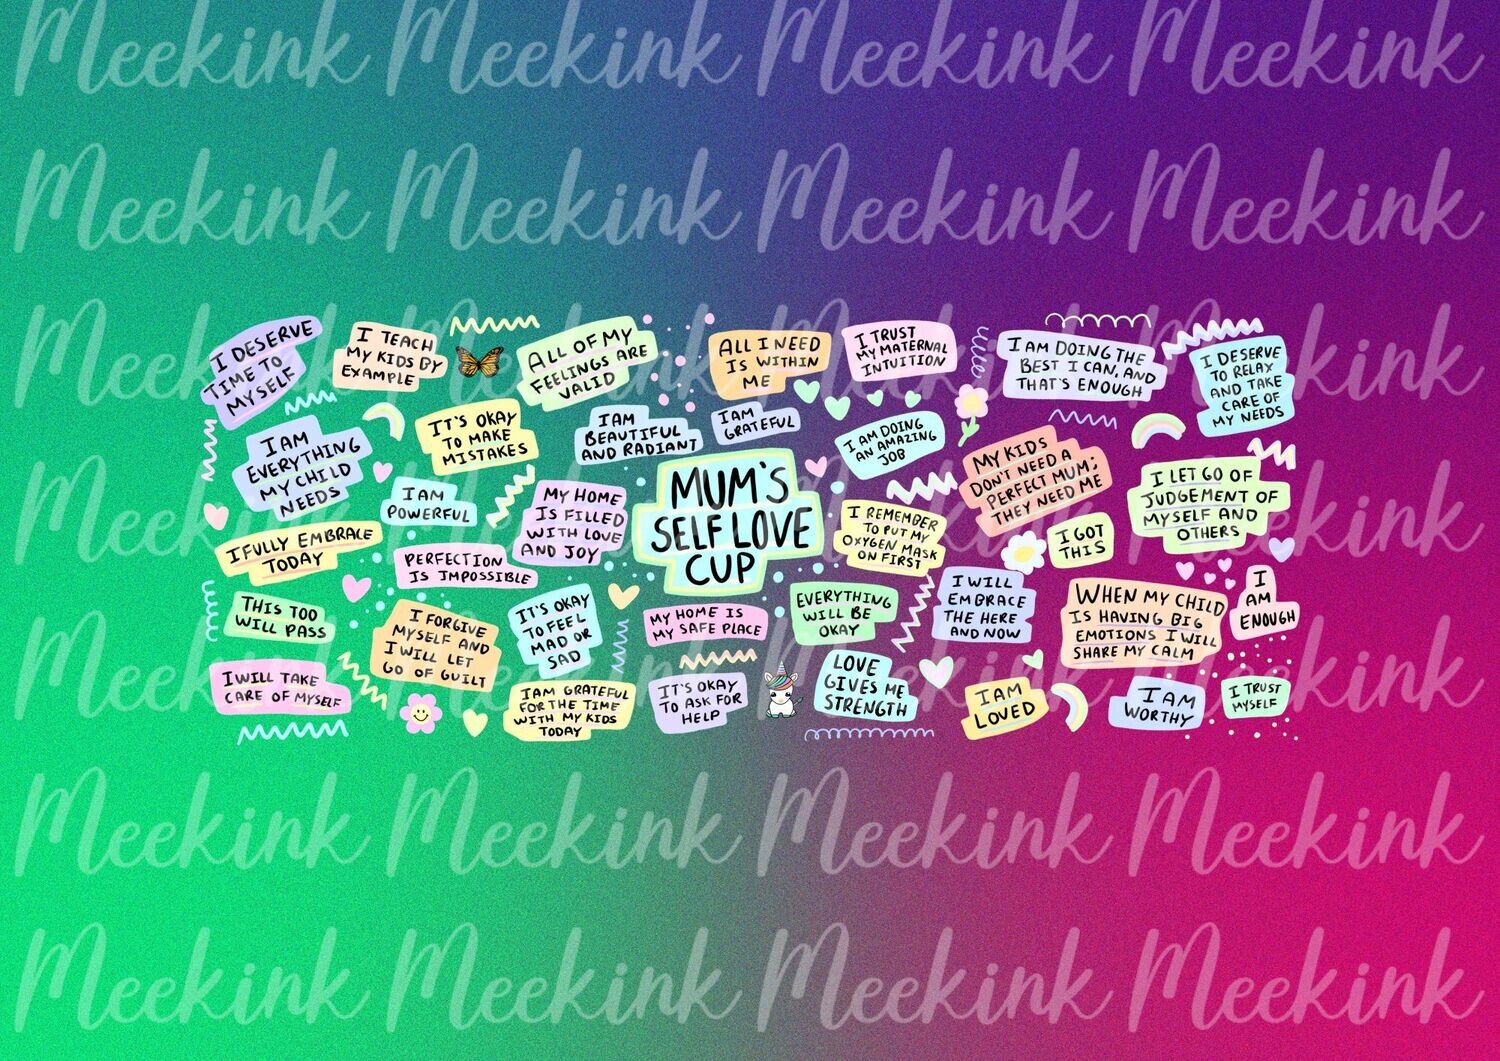 Meekink Meekink Meekink Meekink
Meekink Meekink Meekink Meekink
Meekink Meekink Meekink Meekink
I DESERVE
TIME TO
MYSELF
I TEACH
MY KIDS BY
EXAMPLE
ALL OF MY
FEELINGS ARE
VALID
ALL I NEED
IS WITHIN
ME
I TRUST
MY MATERNAL
INTUITION
I AM DOING THE
BEST I CAN, AND
THAT'S ENOUGH
I DESERVE
TO RELAX
AND TAKE
CARE OF
MY NEEDS
I AM
EVERYTHING
MY CHILD
NEEDS
IT'S OKAY
TO MAKE
MISTAKES
I AM
BEAUTIFUL
AND RADIANT
I AM
GRATEFUL
I AM DOING
AN AMAZING
JOB
MY KIDS
DON'T NEED A
PERFECT MUM;
THEY NEED ME
I LET GO OF
JUDGEMENT OF
MYSELF AND
OTHERS
Meekink Meekink Meekink Meekink
I AM
POWERFUL
MY HOME
IS FILLED
WITH LOVE
AND JOY
MUM'S
SELF LOVE
CUP
I REMEMBER
TO PUT MY
OXYGEN MASK
ON FIRST
I GOT
THIS
I FULLY EMBRACE
TODAY
PERFECTION
IS IMPOSSIBLE
I WILL
EMBRACE
THE HERE
AND NOW
WHEN MY CHILD
IS HAVING BIG
EMOTIONS I WILL
SHARE MY CALM
I
AM
ENOUGH
THIS TOO
WILL PASS
I FORGIVE
MYSELF AND
I WILL LET
GO OF GUILT
IT'S OKAY
TO FEEL
MAD OR
SAD
MY HOME IS
MY SAFE PLACE
EVERYTHING
WILL BE
OKAY
Meekink Meekink Meekink Meekink
I WILL TAKE
CARE OF MYSELF
I AM GRATEFUL
FOR THE TIME
WITH MY KIDS
TODAY
IT'S OKAY
TO ASK FOR
HELP
LOVE
GIVES ME
STRENGTH
I AM
LOVED
I AM
WORTHY
I TRUST
MYSELF
Meekink Meekink Meekink Meekink
Meekink Meekink Meekink Meekink